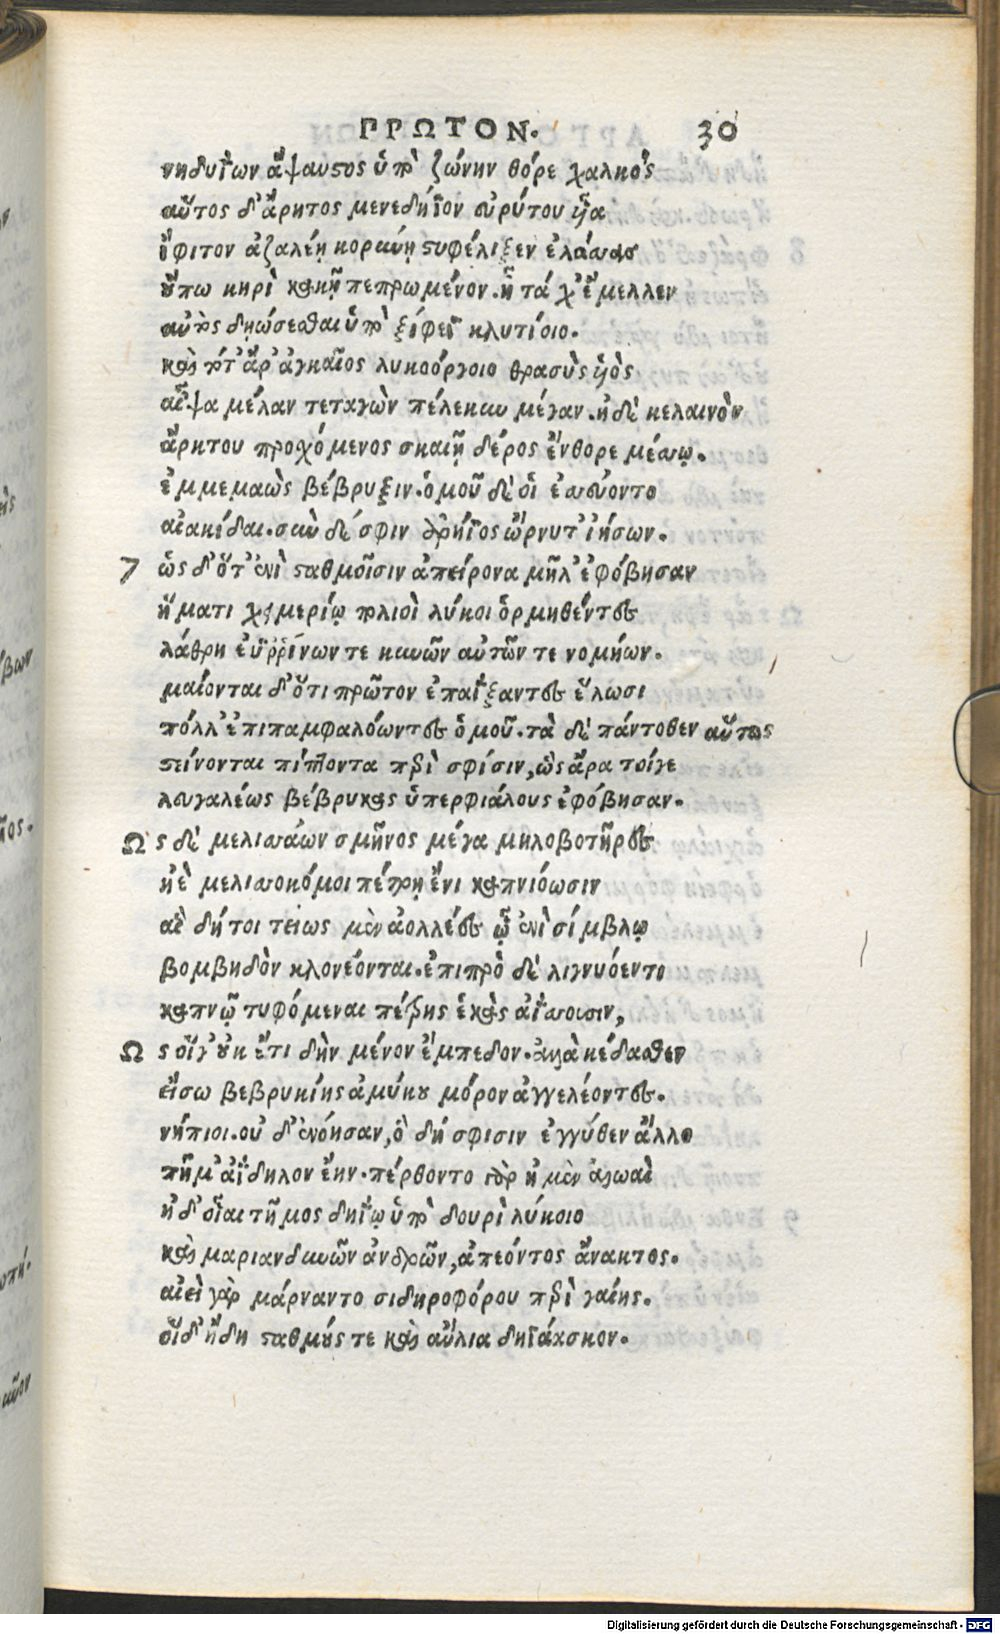 ΠΡΩΤΟΝ. 30
νηδυΐων ἄψαυστος ὑπὸ ζώνην θόρε χαλκός
αὖτος δ' ἄρητος μενεδήϊον εὐρύτου ἷα
ἴφιτον ἀζαλέῃ κορώνῃ στυφέλιξεν ἐλάσσας
οὔπω κηρὶ κακῇ πεπρωμένον. ἦ τά χ' ἔμελλεν
αὐτὸς δῃώσεσθαι ὑπὸ ξίφεϊ κλυτίοιο.
καὶ τότ' ἄρ' ἀγκαῖος λυκοόργοιο θρασὺς ἱὸς
αἶψα μέλαν τεταγὼν πέλεκυν μέγαν. ἠδὲ κελαινὸν
ἄρκτου προχόμενος σκαιῇ δέρος ἔνθορε μέσσῳ.
ἐμμεμαὼς βέβρυξιν. ὁμοῦ δέ οἱ ἐσσεύοντο
αἰακίδαι. σὺν δέ σφιν ἀρήϊος ὤρνυτ' ἰήσων.
7 ὡς δ' ὅτ' ἐνὶ σταθμοῖσιν ἀπείρονα μῆλ' ἐφόβησαν
ἤματι χειμερίῳ πολιοὶ λύκοι ὁρμηθέντες
λάθρη ἐϋῤῥίνων τε κυνῶν αὐτῶν τε νομήων.
μαίονται δ' ὅτι πρῶτον ἐπαΐξαντες ἕλωσι
πόλλ' ἐπιπαμφαλόωντες ὁμοῦ. τὰ δὲ πάντοθεν αὔτως
στείνονται πίπτοντα περὶ σφίσιν, ὣς ἄρα τοίγε
λευγαλέως βέβρυκας ὑπερφιάλους ἐφόβησαν.
Ως δὲ μελισσάων σμῆνος μέγα μηλοβοτῆρες
ἠὲ μελισσοκόμοι πέτρῃ ἔνι καπνιόωσιν
αἱ δή τοι τείως μὲν ἀολλέες ᾧ ἐνὶ σίμβλῳ
βομβηδὸν κλονέονται. ἐπιπρὸ δὲ λιγνυόεντι
καπνῷ τυφόμεναι πέτρης ἑκὰς ἀΐσσουσιν,
Ως οἵγ' οὐκ ἔτι δὴν μένον ἔμπεδον. ἀλλὰ κέδασθεν
εἴσω βεβρυκίης ἀμύκου μόρον ἀγγελέοντες.
νήπιοι. οὐδ' ἐνόησαν, ὃ δή σφισιν ἐγγύθεν ἄλλο
πῆμ' ἀΐδηλον ἔην. πέρθοντο γὰρ ἠμὲν ἀλωαὶ
ἠδ' οἷαι τῆμος δηΐῳ ὑπὸ δουρὶ λύκοιο
καὶ μαριανδυνῶν ἀνδρῶν, ἀπεόντος ἄνακτος.
αἰεὶ γὰρ μάρναντο σιδηροφόρου περὶ γαίης.
οἵδ' ἤδη σταθμούς τε καὶ αὔλια δηϊάασκον.
Digitalisierung gefördert durch die Deutsche Forschungsgemeinschaft - DFG